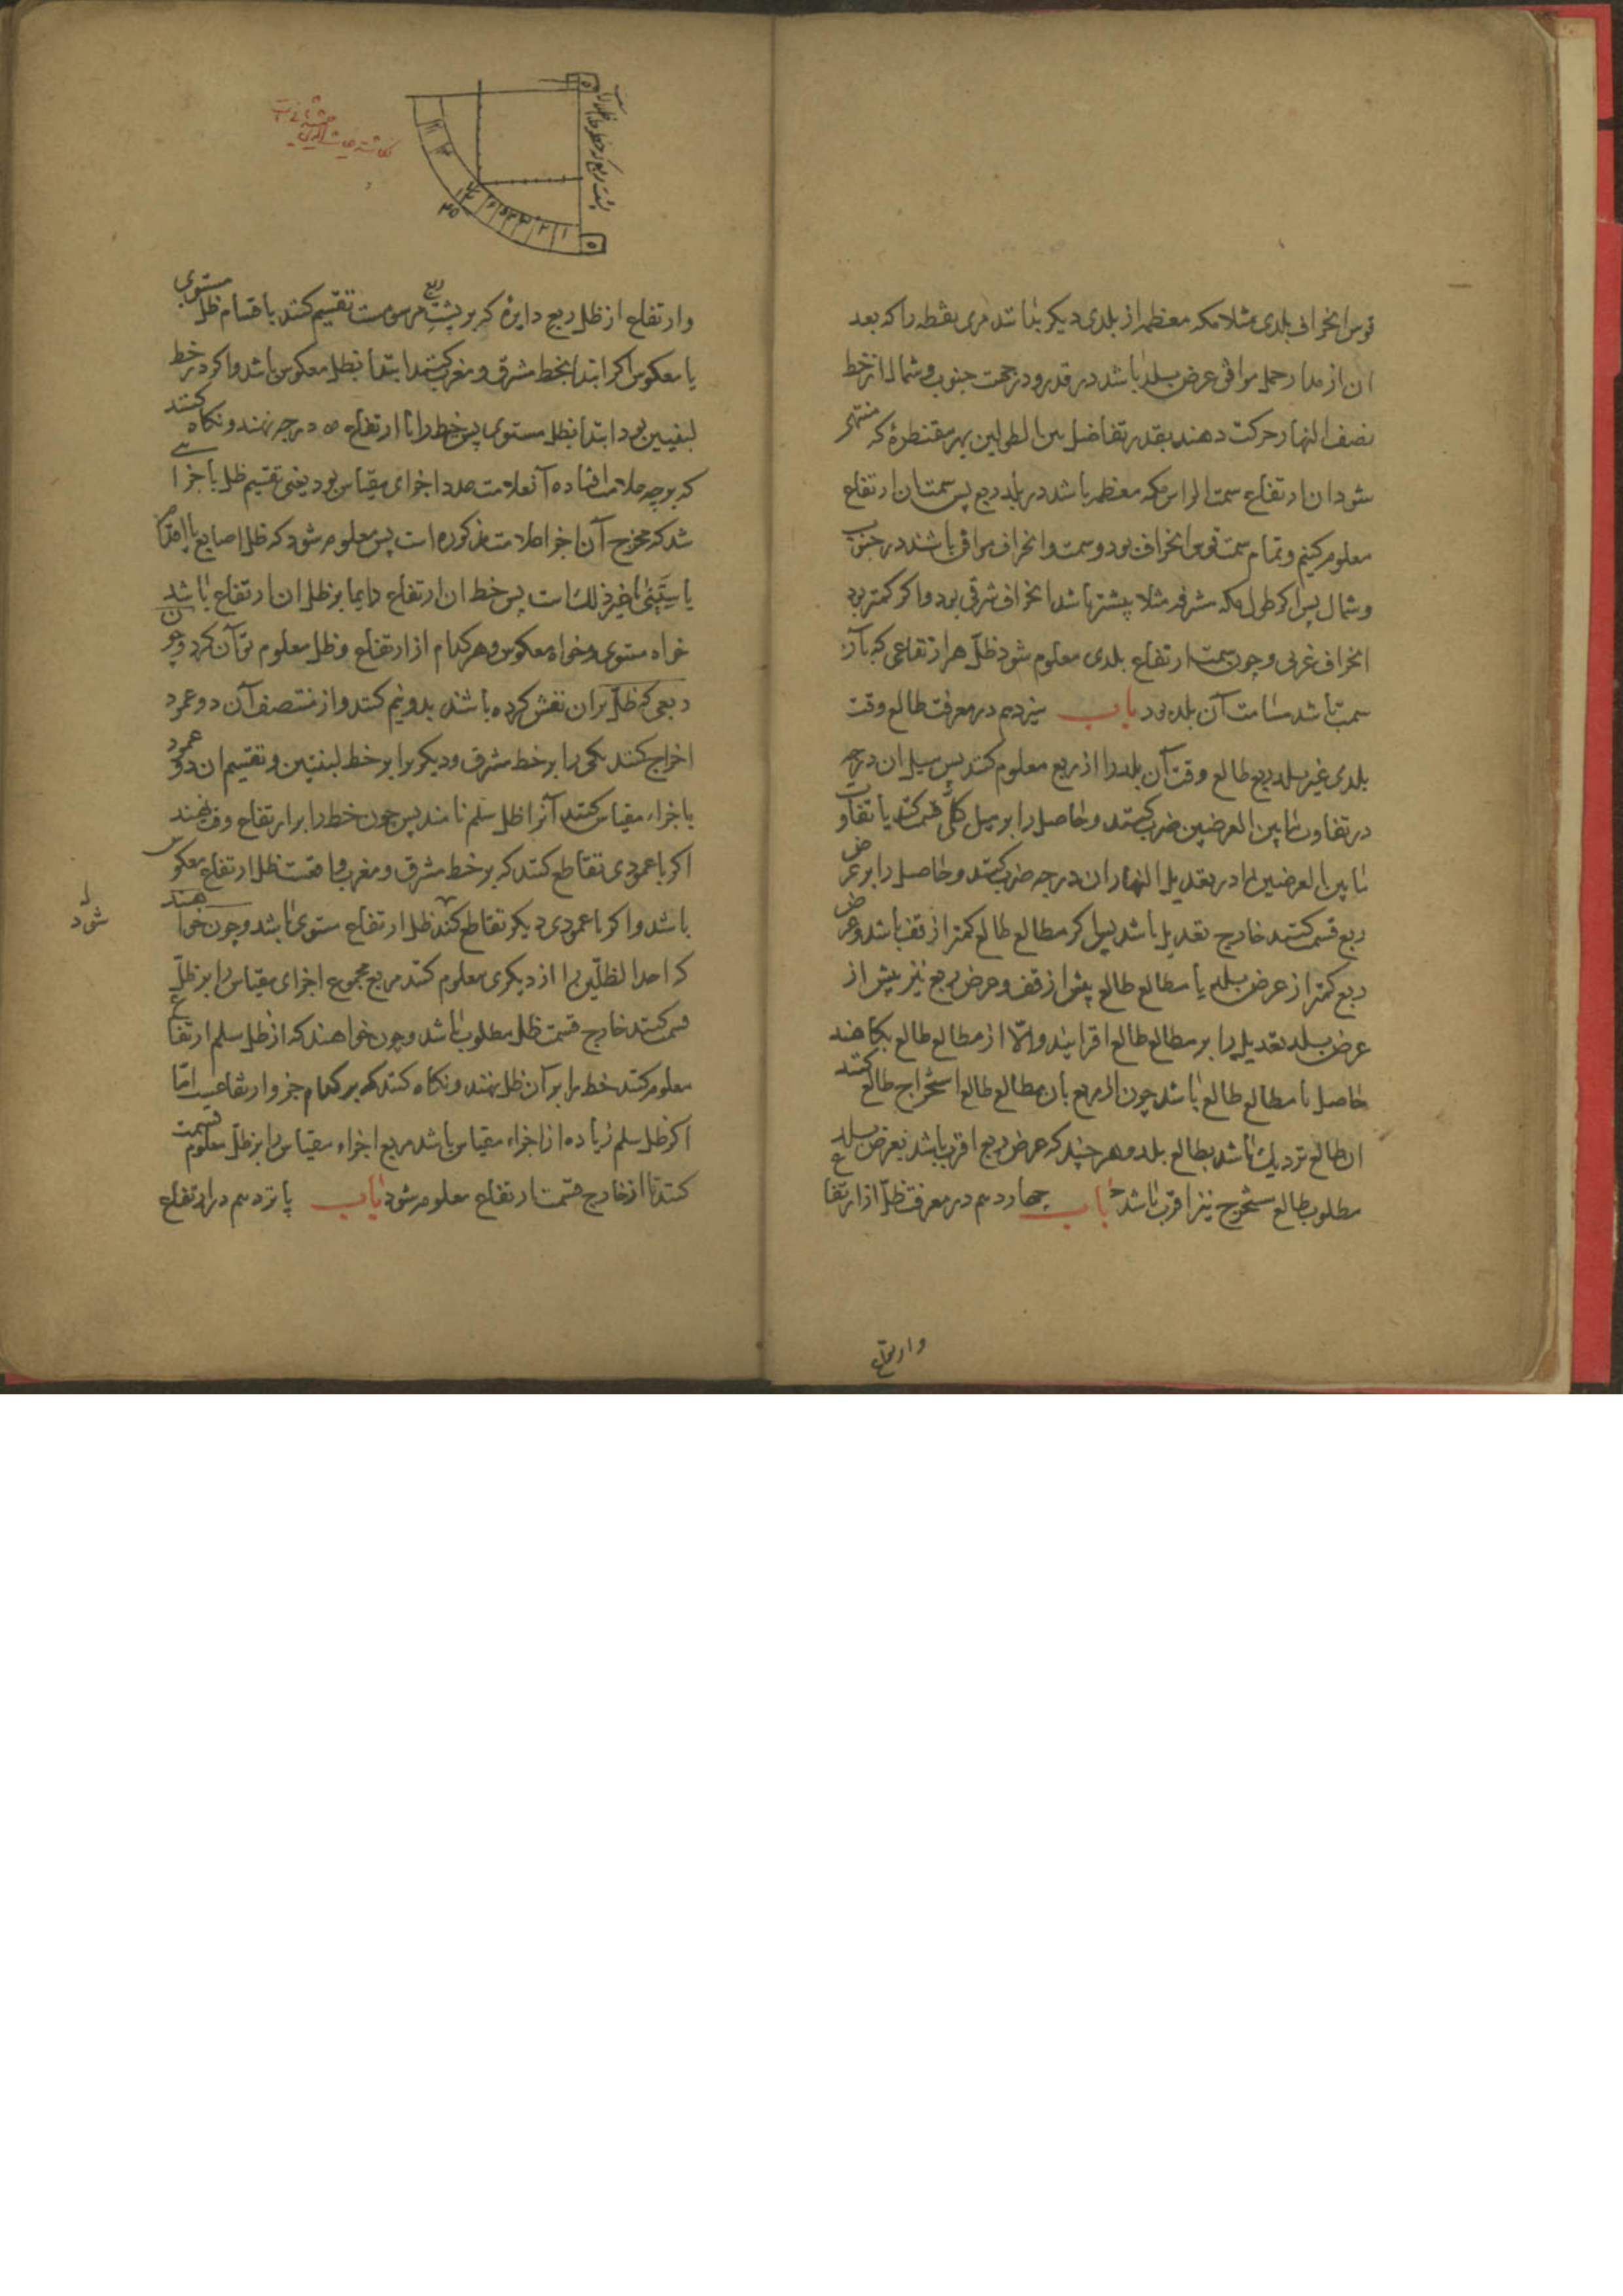 قوس انحراف بلدی مثلا مکه معظمه از بلدی دیکر بنا شد مری بقطه را که بعد
ان از مدار حمل موافق عرض بلد باشد در قدر و در جهت جنوب و شمال از خط
نصف النهار حرکت دهند بقدر تفاضل بین الطولین بهر مقنطرهٔ که منتهی
شود ان ارتفاع سمت الراس مکه معظمه باشد در بلد ربع پس سمت ان ارتفاع
معلوم کنیم و تمام سمت قوس انحراف بود و سمت و انحراف موافق باشند در جنوب
و شمال پس اکر طول مکه مشرفه مثلا بیشتر باشد انحراف شرقی بود و اکر کمتر بود
انحراف غربی و چون سمت ارتفاع بلدی معلوم شود ظل هر ارتفاعی که بآن
سمت باشد مسامت آن بلد بود باب سیزدهم در معرفت طالع وقت
بلدی غیر بلد ربع طالع وقت آن بلد را از ربع معلوم کنند پس میل ان درجه
در تفاوت ما بین العرضین ضرب کنند و حاصل را بر میل کلی قسمت کنند یا تفاوت
ما بین العرضین را در تعدیل النهار ان درجه ضرب کنند و حاصل را بر عرض
ربع قسمت کنند خارج تعدیل باشد پس اکر مطالع طالع کمتر از قف باشد و عرض
ربع کمتر از عرض بلد یا مطالع طالع بیش از قف و عرض ربع نیز بیش از
عرض بلد تعدیل را بر مطالع طالع افزایند و الّا از مطالع طالع بکاهند
حاصل مطالع طالع باشد چون از ربع بان مطالع طالع استخراج طالع کنند
ان طالع نزدیک باشد بطالع بلد و هر چند که عرض ربع اقرب باشد بعرض بلد
مطلوب طالع مستخرج نیز اقرب باشد باب چهاردهم در معرفت ظلّ از ارتفاع
وارتفاع
پشت ربع که خط
۴۵
وارتفاع از ظل ربع دایرهٔ که بر پشت ربع مرسومست تقسیم کنند باقسام ظل مستوی
یا معکوس اکر ابتدا بخط مشرق و مغرب کنند ابتدا بظل معکوس باشد و اکر در خط
لبنتین بود ابتدا بظل مستوی پس خط را با ارتفاع ۴۵ درجه نهند و نکاه کنند
که بر چه علامت افتاده آنعلامت عدد اجزای مقیاس بود یعنی تقسیم ظل باجزا
شد که مخرج آن اجزا علامت مذکوره است پس معلوم شود که ظل اصابع یا اقدام
یا ستینی یا غیر ذلک است پس خط ان ارتفاع دایما بر ظل ان ارتفاع باشد
خواه مستوی و خواه معکوس و هر کدام از ارتفاع و ظل معلوم توان کرد و چون
ربعی که ظل بران نقش کرده باشند بدو نیم کنند و از منتصف آن دو عمود
اخراج کنند یکی را بر خط مشرق و دیکر را بر خط لبنتین و تقسیم ان دو عمود
باجزاء مقیاس کنند آنرا ظل سلم نامند پس چون خط را بر ارتفاع وقت نهند
اکر با عمودی تقاطع کند که بر خط مشرق و مغرب واقعست ظل ارتفاع معکوس
باشد و اکر با عمودی دیکر تقاطع کند ظل ارتفاع مستوی باشد و چون خواهند
که احد الظلّین را از دیکری معلوم کنند مربع مجموع اجزای مقیاس را بر ظلّ
قسمت کنند خارج قسمت ظل مطلوب باشد و چون خواهند که از ظل سلم ارتفاع
معلوم کنند خط را بر آن ظل نهند و نکاه کنند که بر کدام جزو ارتفاعست امّا
اکر ظل سلم زیاده از اجزاء مقیاس باشد مربع اجزاء مقیاس را بر ظلّ معلوم قسمت
کنند تا از خارج قسمت ارتفاع معلوم شود باب پانزدهم در ارتفاع
شود